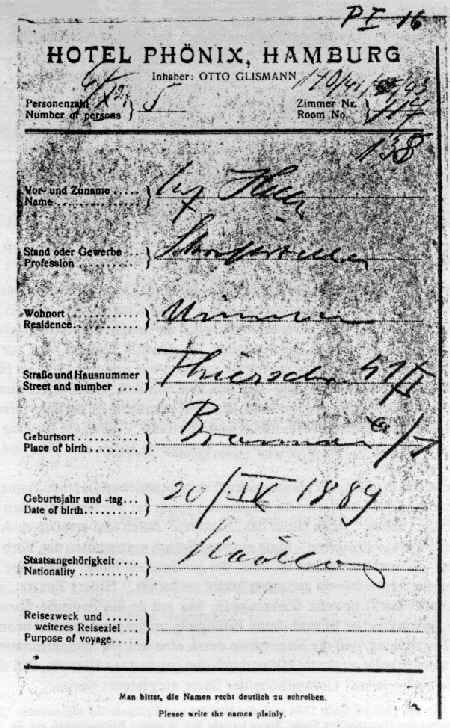 PI 16
HOTEL PHÖNIX, HAMBURG
Inhaber: OTTO GLISMANN
Personenzahl
Number of persons
5
Zimmer Nr.
Room No.
138
Vor- und Zuname .....
Name ..................
Stand oder Gewerbe ...
Profession .............
Schriftsteller
Wohnort ...............
Residence ..............
München
Straße und Hausnummer
Street and number ....
Thiersch 41/I
Geburtsort ............
Place of birth ..........
Braunau a/I
Geburtsjahr und -tag ...
Date of birth ...........
20/IV 1889
Staatsangehörigkeit ....
Nationality ............
Reisezweck und ......
weiteres Reiseziel ...
Purpose of voyage .....
Man bittet, die Namen recht deutlich zu schreiben.
Please write the names plainly.